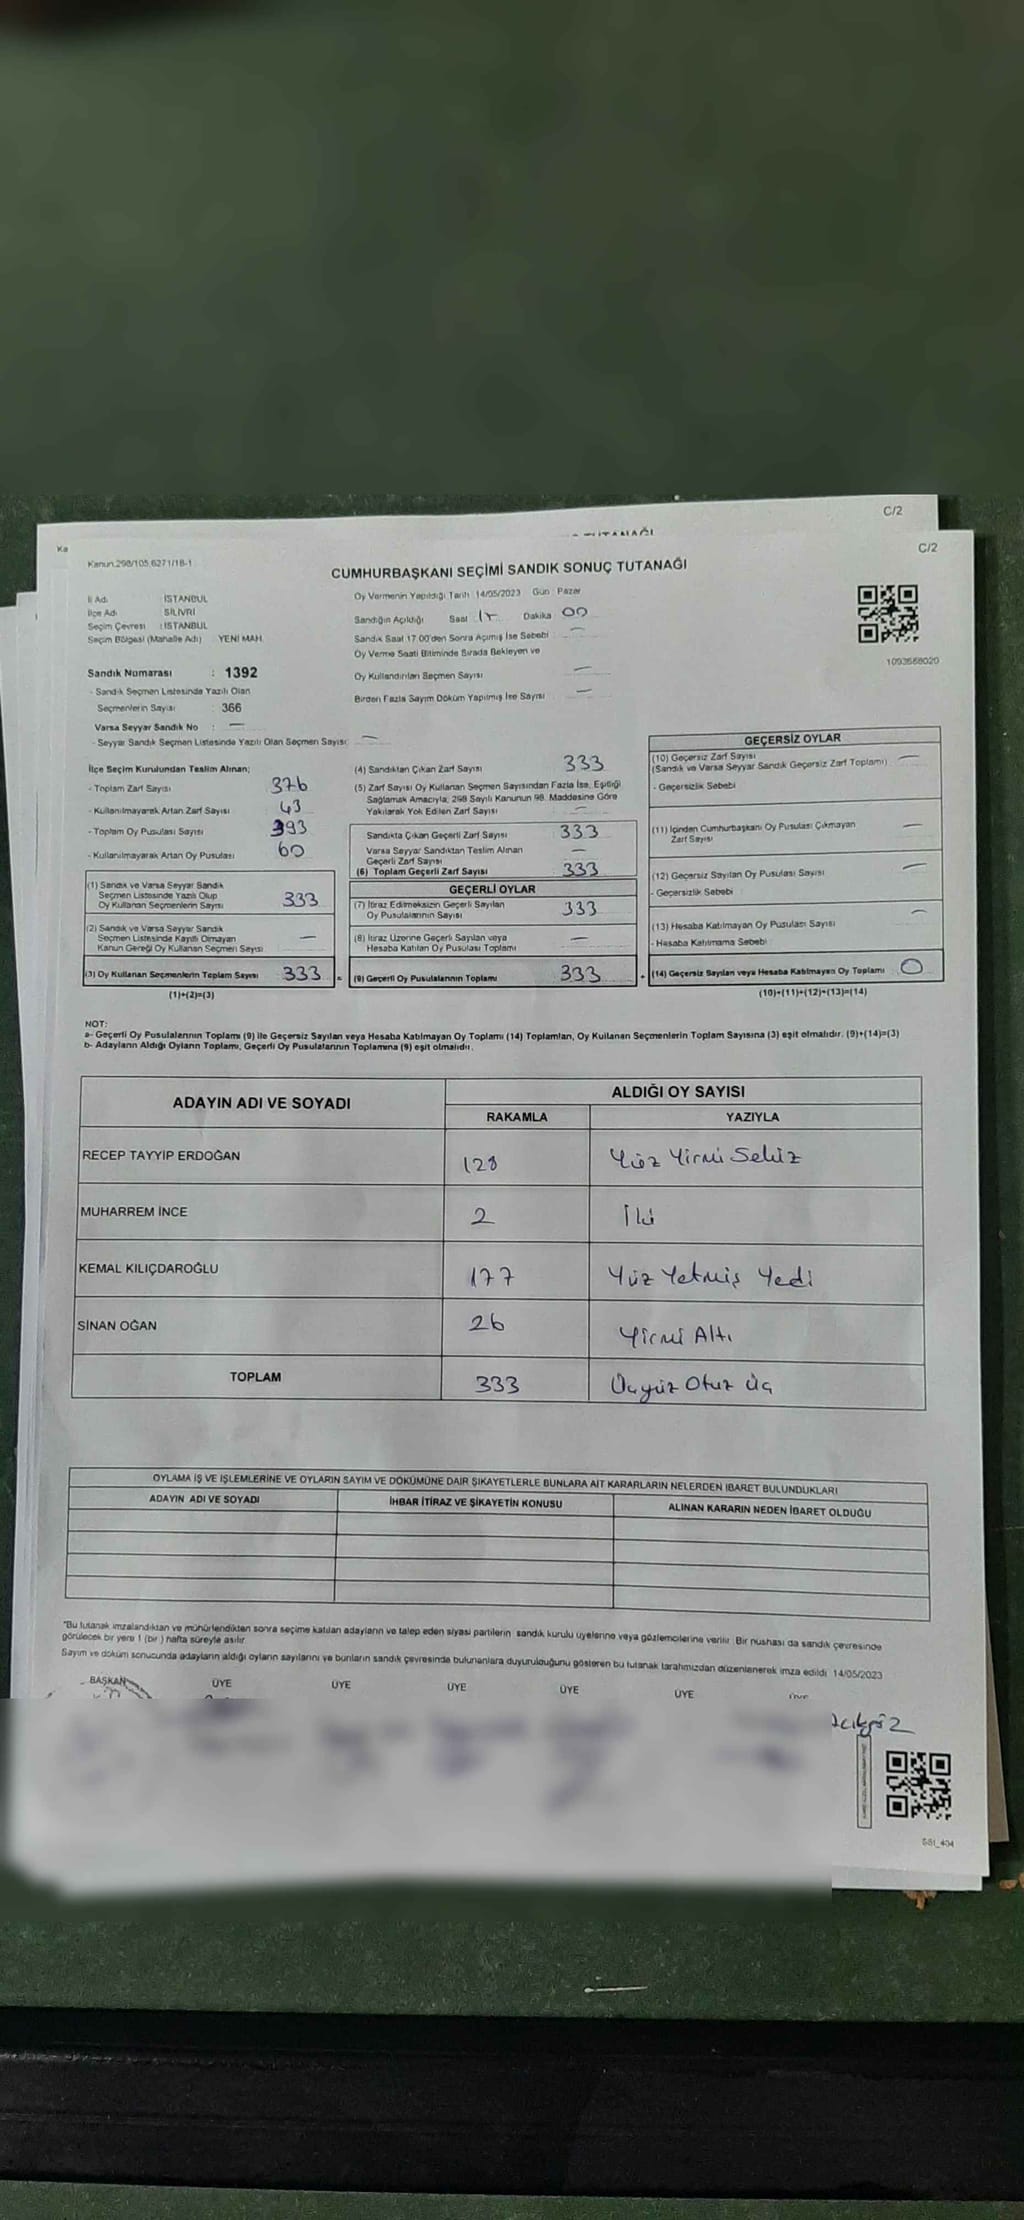 C/2
TUTANAĞI
Ka
C/2
Kanun.298/105,6271/18-1
CUMHURBAŞKANI SEÇİMİ SANDIK SONUÇ TUTANAĞI
İl Adı : İSTANBUL
İlçe Adı : SİLİVRİ
Seçim Çevresi : İSTANBUL
Seçim Bölgesi (Mahalle Adı) YENİ MAH.
Oy Vermenin Yapıldığı Tarih 14/05/2023 Gün Pazar
Sandığın Açıldığı Saat 17 Dakika 00
Sandık Saat 17.00'den Sonra Açılmış İse Sebebi —
Oy Verme Saati Bitiminde Sırada Bekleyen ve
Oy Kullandırılan Seçmen Sayısı —
Birden Fazla Sayım Döküm Yapılmış İse Sayısı —
1093568020
Sandık Numarası : 1392
- Sandık Seçmen Listesinde Yazılı Olan
Seçmenlerin Sayısı : 366
Varsa Seyyar Sandık No : —
- Seyyar Sandık Seçmen Listesinde Yazılı Olan Seçmen Sayısı: —
İlçe Seçim Kurulundan Teslim Alınan;
- Toplam Zarf Sayısı 376
- Kullanılmayarak Artan Zarf Sayısı 43
- Toplam Oy Pusulası Sayısı 393
- Kullanılmayarak Artan Oy Pusulası 60
(1) Sandık ve Varsa Seyyar Sandık
Seçmen Listesinde Yazılı Olup
Oy Kullanan Seçmenlerin Sayısı 333
(2) Sandık ve Varsa Seyyar Sandık
Seçmen Listesinde Kayıtlı Olmayan
Kanun Gereği Oy Kullanan Seçmen Sayısı —
(3) Oy Kullanan Seçmenlerin Toplam Sayısı 333 =
(1)+(2)=(3)
(4) Sandıktan Çıkan Zarf Sayısı 333
(5) Zarf Sayısı Oy Kullanan Seçmen Sayısından Fazla İse, Eşitliği
Sağlamak Amacıyla; 298 Sayılı Kanunun 98. Maddesine Göre
Yakılarak Yok Edilen Zarf Sayısı —
Sandıkta Çıkan Geçerli Zarf Sayısı 333
Varsa Seyyar Sandıktan Teslim Alınan
Geçerli Zarf Sayısı —
(6) Toplam Geçerli Zarf Sayısı 333
GEÇERLİ OYLAR
(7) İtiraz Edilmeksizin Geçerli Sayılan
Oy Pusulalarının Sayısı 333
(8) İtiraz Üzerine Geçerli Sayılan veya
Hesaba Katılan Oy Pusulası Toplamı —
(9) Geçerli Oy Pusulalarının Toplamı 333 +
GEÇERSİZ OYLAR
(10) Geçersiz Zarf Sayısı
(Sandık ve Varsa Seyyar Sandık Geçersiz Zarf Toplamı) —
- Geçersizlik Sebebi
(11) İçinden Cumhurbaşkanı Oy Pusulası Çıkmayan
Zarf Sayısı —
(12) Geçersiz Sayılan Oy Pusulası Sayısı —
- Geçersizlik Sebebi
(13) Hesaba Katılmayan Oy Pusulası Sayısı —
- Hesaba Katılmama Sebebi
(14) Geçersiz Sayılan veya Hesaba Katılmayan Oy Toplamı 0
(10)+(11)+(12)+(13)=(14)
NOT:
a- Geçerli Oy Pusulalarının Toplamı (9) ile Geçersiz Sayılan veya Hesaba Katılmayan Oy Toplamı (14) Toplamları, Oy Kullanan Seçmenlerin Toplam Sayısına (3) eşit olmalıdır. (9)+(14)=(3)
b- Adayların Aldığı Oyların Toplamı, Geçerli Oy Pusulalarının Toplamına (9) eşit olmalıdır.
ADAYIN ADI VE SOYADI ALDIĞI OY SAYISI
RAKAMLA YAZIYLA
RECEP TAYYİP ERDOĞAN 128 Yüz Yirmi Sekiz
MUHARREM İNCE 2 İki
KEMAL KILIÇDAROĞLU 177 Yüz Yetmiş Yedi
SİNAN OĞAN 26 Yirmi Altı
TOPLAM 333 Üçyüz Otuz Üç
OYLAMA İŞ VE İŞLEMLERİNE VE OYLARIN SAYIM VE DÖKÜMÜNE DAİR ŞİKAYETLERLE BUNLARA AİT KARARLARIN NELERDEN İBARET BULUNDUKLARI
ADAYIN ADI VE SOYADI İHBAR İTİRAZ VE ŞİKAYETİN KONUSU ALINAN KARARIN NEDEN İBARET OLDUĞU
*Bu tutanak imzalandıktan ve mühürlendikten sonra seçime katılan adayların ve talep eden siyasi partilerin sandık kurulu üyelerine veya gözlemcilerine verilir. Bir nüshası da sandık çevresinde
görülecek bir yere 1 (bir ) hafta süreyle asılır.
Sayım ve döküm sonucunda adayların aldığı oyların sayılarını ve bunların sandık çevresinde bulunanlara duyurulduğunu gösteren bu tutanak tarafımızdan düzenlenerek imza edildi. 14/05/2023
BAŞKAN ÜYE ÜYE ÜYE ÜYE ÜYE
Açıkgöz
SSİ_404